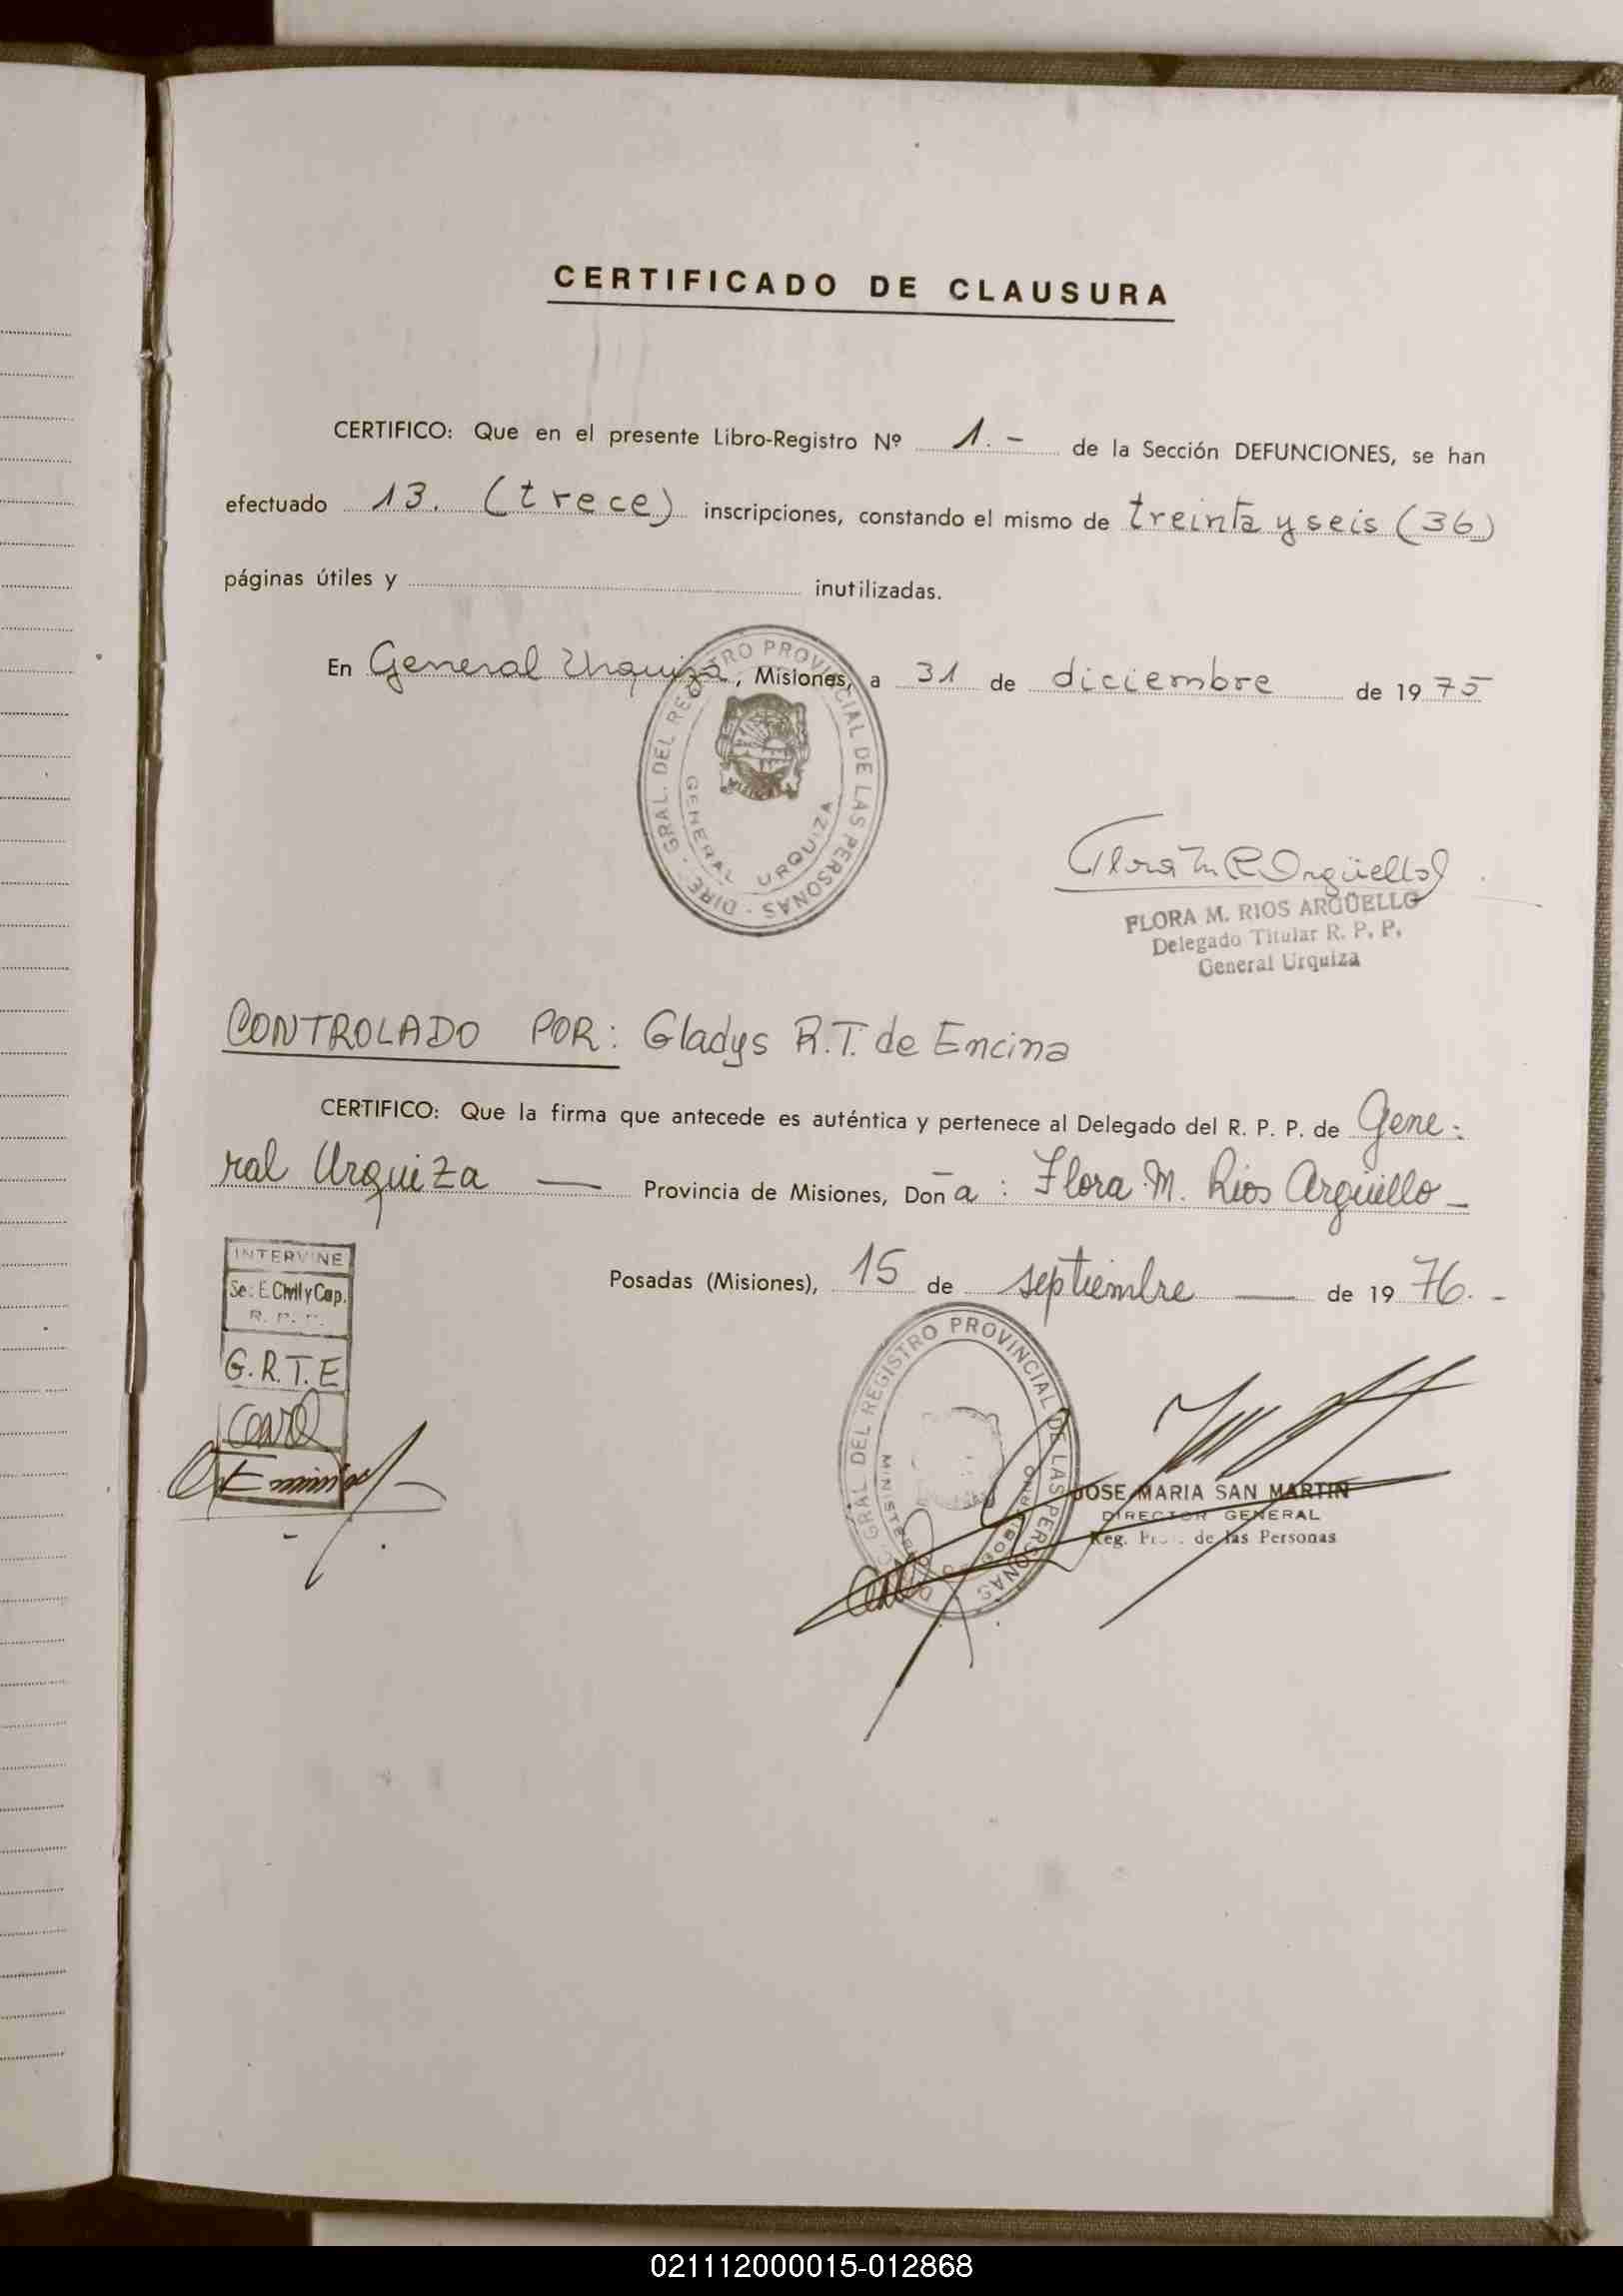 CERTIFICADO DE CLAUSURA
CERTIFICO: Que en el presente Libro-Registro Nº 1.- de la Sección DEFUNCIONES, se han
efectuado 13. (trece) inscripciones, constando el mismo de treinta y seis (36)
páginas útiles y inutilizadas.
En General Urquiza, Misiones, a 31 de diciembre de 1975
DIRE. GRAL. DEL REGISTRO PROVINCIAL DE LAS PERSONAS
GENERAL URQUIZA
Flora M R Argüello
FLORA M. RIOS ARGÜELLO
Delegado Titular R. P. P.
General Urquiza
CONTROLADO POR: Gladys R.T. de Encina
CERTIFICO: Que la firma que antecede es auténtica y pertenece al Delegado del R. P. P. de Gene-
ral Urquiza — Provincia de Misiones, Doña : Flora M. Rios Argüello -
Posadas (Misiones), 15 de septiembre — de 1976. -
INTERVINE
Sec. E. Civil y Cap.
R. P. P.
G.R.T.E
GRAL DEL REGISTRO PROVINCIAL DE LAS PERSONAS
MINISTERIO DE GOBIERNO
JOSE MARIA SAN MARTIN
DIRECTOR GENERAL
Reg. Prov. de las Personas
021112000015-012868